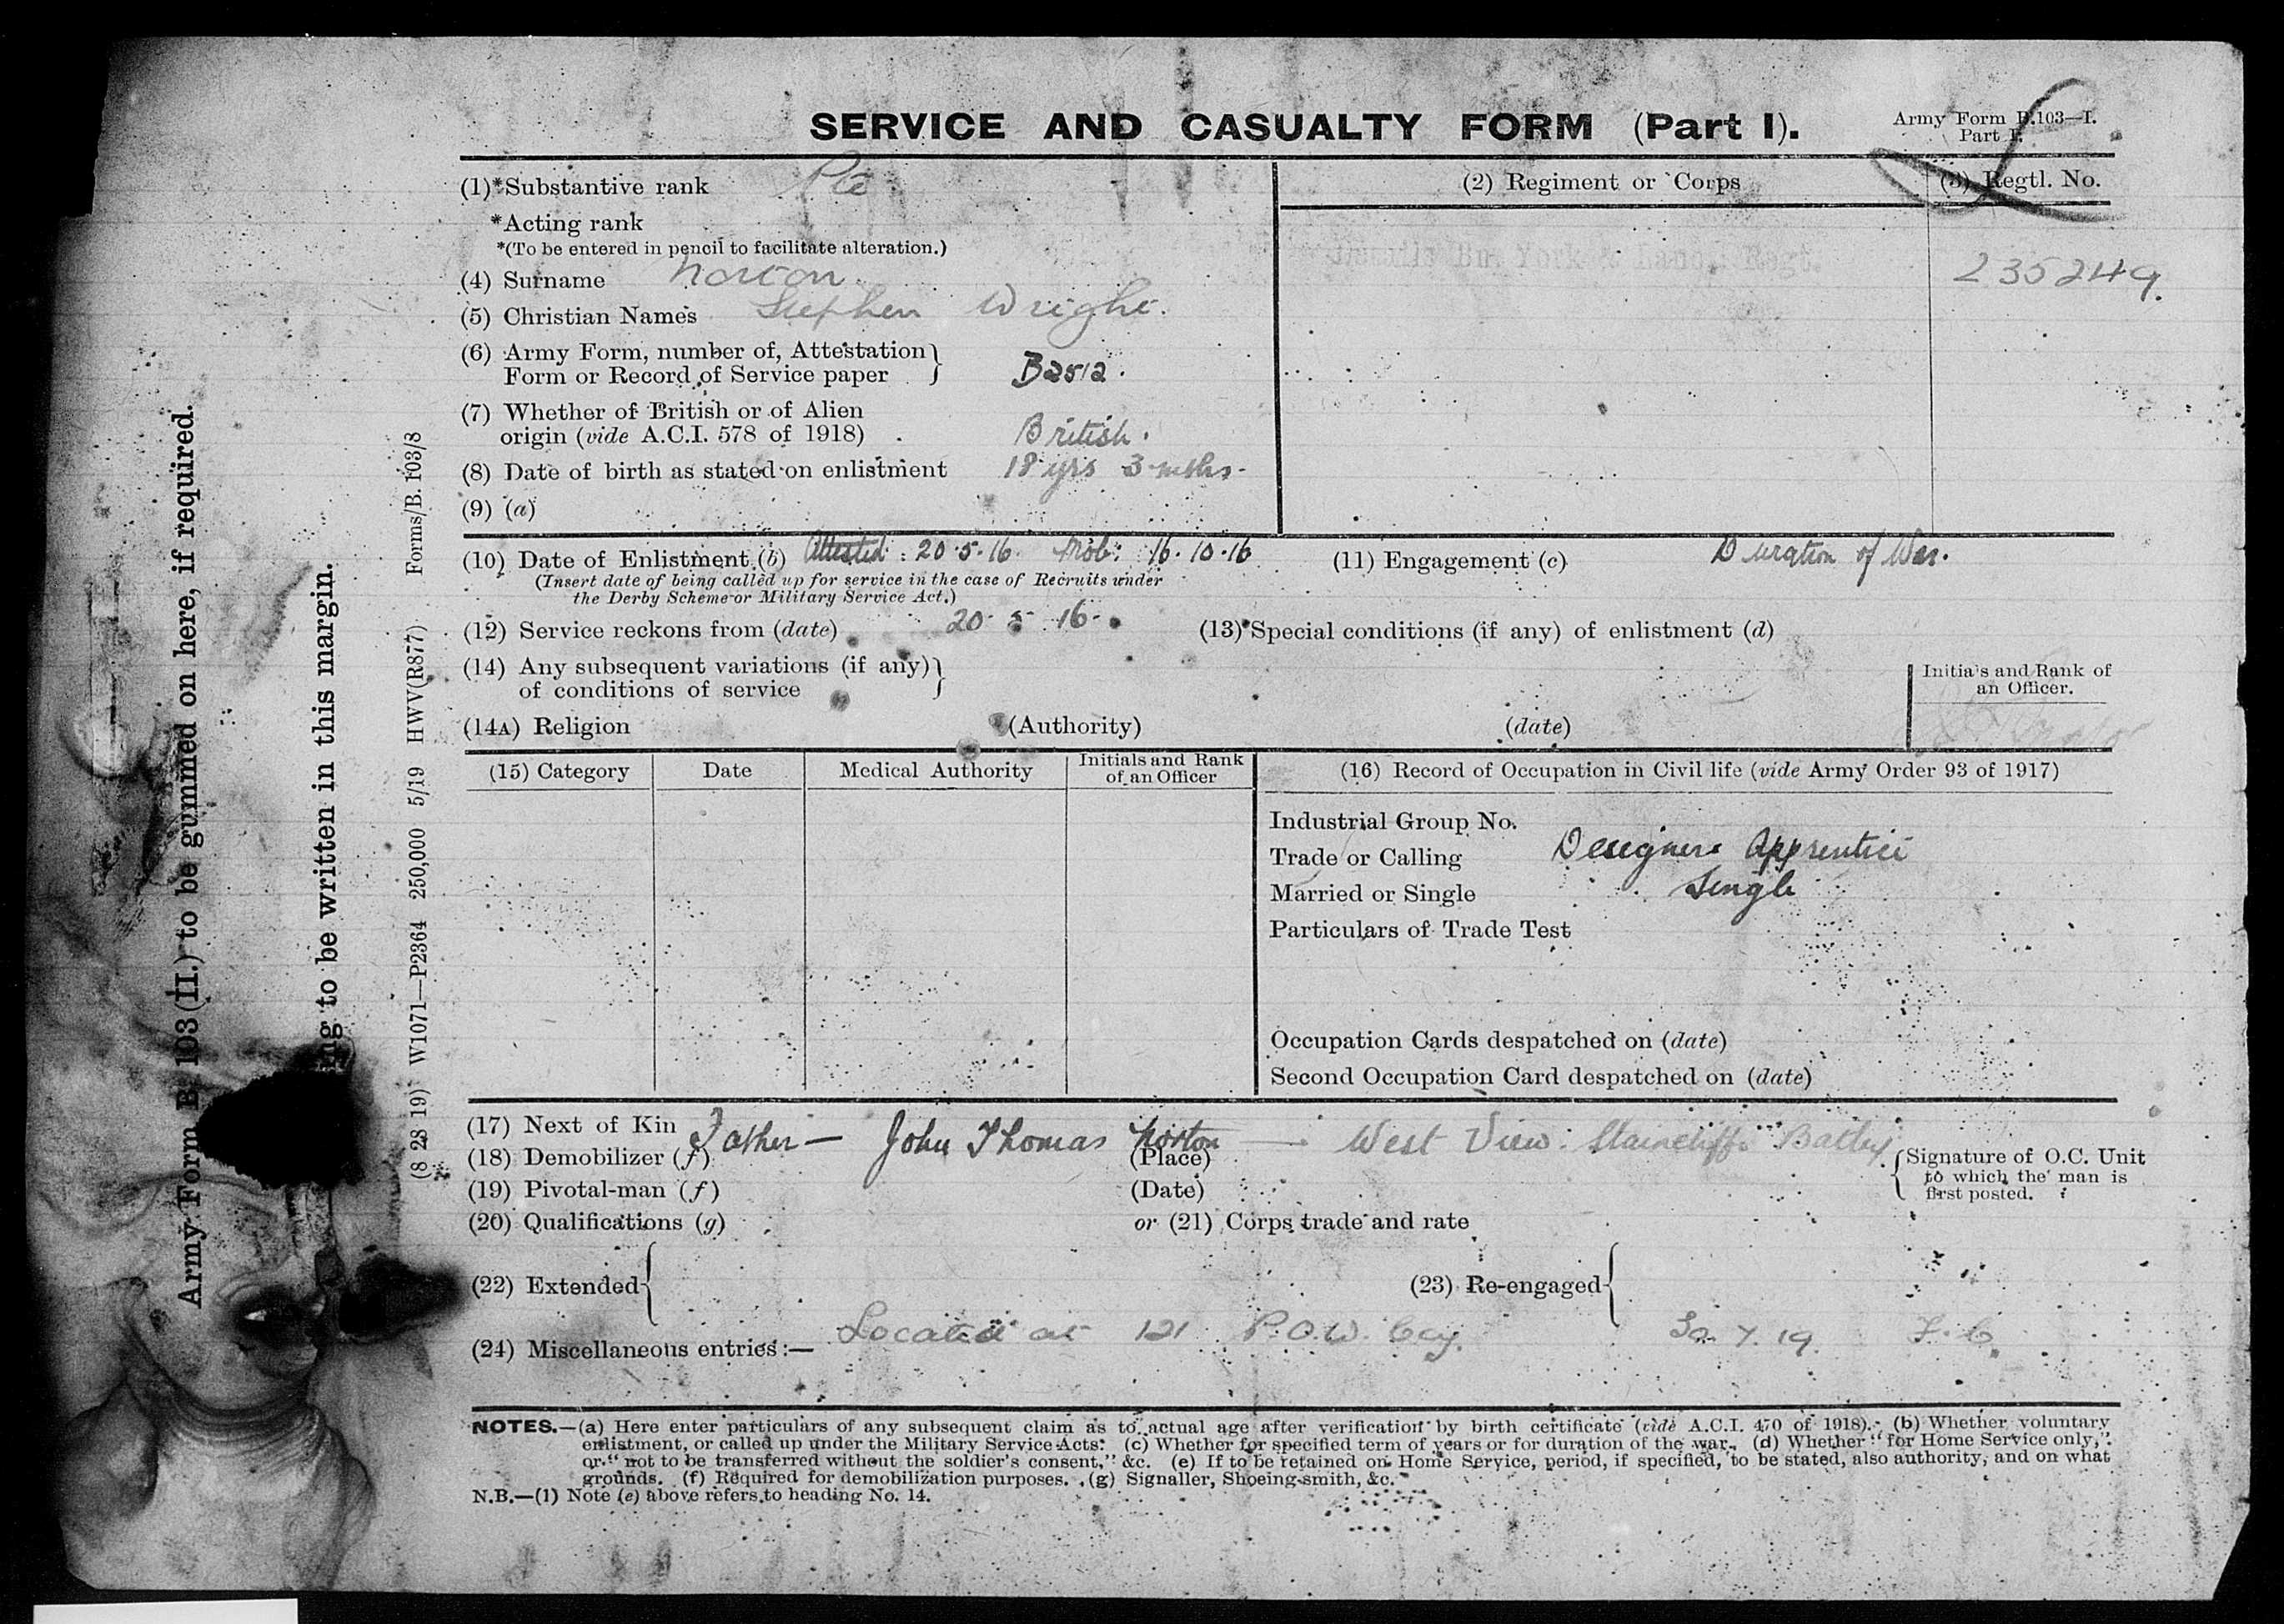 SERVICE AND CASUALTY FORM (Part I).
Army Form B.103—I.
Part I.
(1) *Substantive rank Pte
(2) Regiment or Corps
(3) Regtl. No.
*Acting rank
*(To be entered in pencil to facilitate alteration.)
York & Lanc. Regt.
235249.
(4) Surname Norton
(5) Christian Names Stephen Wright.
(6) Army Form, number of, Attestation
Form or Record of Service paper
B2512.
(7) Whether of British or of Alien
origin (vide A.C.I. 578 of 1918) . British.
(8) Date of birth as stated on enlistment 18 yrs 3 mths.
(9) (a)
(10) Date of Enlistment (b) Attested: 20.5.16. Mob: 16.10.16
(11) Engagement (c) Duration of War.
(Insert date of being called up for service in the case of Recruits under
the Derby Scheme or Military Service Act.)
(12) Service reckons from (date) 20-5-16.
(13) Special conditions (if any) of enlistment (d)
(14) Any subsequent variations (if any)
of conditions of service
Initials and Rank of
an Officer.
(14A) Religion (Authority) (date)
(15) Category Date Medical Authority Initials and Rank
of an Officer
(16) Record of Occupation in Civil life (vide Army Order 93 of 1917)
Industrial Group No.
Trade or Calling Designers Apprentice
Married or Single Single
Particulars of Trade Test
Occupation Cards despatched on (date)
Second Occupation Card despatched on (date)
(17) Next of Kin Father — John Thomas Norton — West View. Staincliffe Batley
(18) Demobilizer (f) (Place)
Signature of O.C. Unit
to which the man is
first posted.
(19) Pivotal-man (f) (Date)
(20) Qualifications (g) or (21) Corps trade and rate
(22) Extended
(23) Re-engaged
(24) Miscellaneous entries :— Located at 121 P.O.W. Coy. 30.7.19.
NOTES.—(a) Here enter particulars of any subsequent claim as to actual age after verification by birth certificate (vide A.C.I. 470 of 1918). (b) Whether voluntary
enlistment, or called up under the Military Service Acts. (c) Whether for specified term of years or for duration of the war. (d) Whether "for Home Service only,"
or "not to be transferred without the soldier's consent," &c. (e) If to be retained on Home Service, period, if specified, to be stated, also authority, and on what
grounds. (f) Required for demobilization purposes. (g) Signaller, Shoeing-smith, &c.
N.B.—(1) Note (e) above refers to heading No. 14.
Army Form B 103 (II.) to be gummed on here, if required.
to be written in this margin.
(8 28 19) W1071—P2364 250,000 5/19 HWV(R877) Forms/B. 103/8